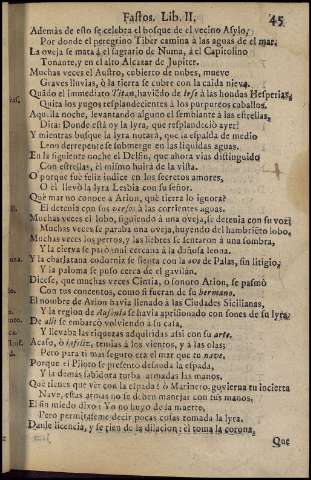 Fastos. Lib. II. 45
Además de esto se celebra el bosque de el vecino Asylo,
Por donde el peregrino Tiber camina à las aguas de el mar.
La oveja se mata à el sagrario de Numa, à el Capitolino
Tonante, y en el alto Alcazar de Jupiter.
Muchas veces el Austro, cubierto de nubes, mueve
Graves lluvias, ò la tierra se cubre con la caida nieve.
Quādo el immediato Titan, haviēdo de irse à las hondas Hesperias,
Quita los yugos resplandecientes à los purpureos caballos.
Aquella noche, levantando alguno el semblante à las estrellas,
Dirà: Donde està oy la lyra, que resplandeciò ayer?
Y mientras busque la lyra notarà, que la espalda de medio
Leon derrepente se sobmerge en las liquidas aguas.
En la siguiente noche el Delfin, que ahora vias distinguido
Con estrellas, èl mismo huirà de la vista.
O porque fuè feliz indice en los secretos amores,
O èl llevò la lyra Lesbia con su señor.
Què mar no conoce à Arion, què tierra lo ignora?
El detenia con sus versos à las corrientes aguas.
Muchas veces el lobo, siguiendo à una oveja, se detenia con su voz;
Muchas veces se paraba una oveja, huyendo del hambriēto lobo,
Muchas veces los perros, y las liebres se sentaron à una sombra,
Y la cierva se puso en cercana à la dañosa leona.
Y la charlatana codorniz se sienta con la ave de Palas, sin litigio,
Y la paloma se puso cerca de el gavilán.
Dicese, que muchas veces Cintia, ò sonoro Arion, se pasmò
Con tus concentos, como si fueran de su hermano.
El nombre de Arion havia llenado à las Ciudades Sicilianas,
Y la region de Ausonia se havia aprisionado con sones de su lyra.
De allì se embarcò volviendo à su casa,
Y llevaba las riquezas adquiridas assi con su arte.
Acaso, ò infeliz, temias à los vientos, y à las olas;
Pero para ti mas seguro era el mar que tu nave.
Porque el Piloto se presentò desnuda la espada,
Y la demás sabidora turba armadas las manos.
Què tienes que ver con la espada? ò Marinero, govierna tu incierta
Nave, estas armas no se deben manejar con tus manos.
El sin miedo dixo: Yo no huyo de la muerte,
Pero permitaseme decir pocas cosas tomada la lyra.
Danle licencia, y se rien de la dilacion: èl toma la corona,
Que